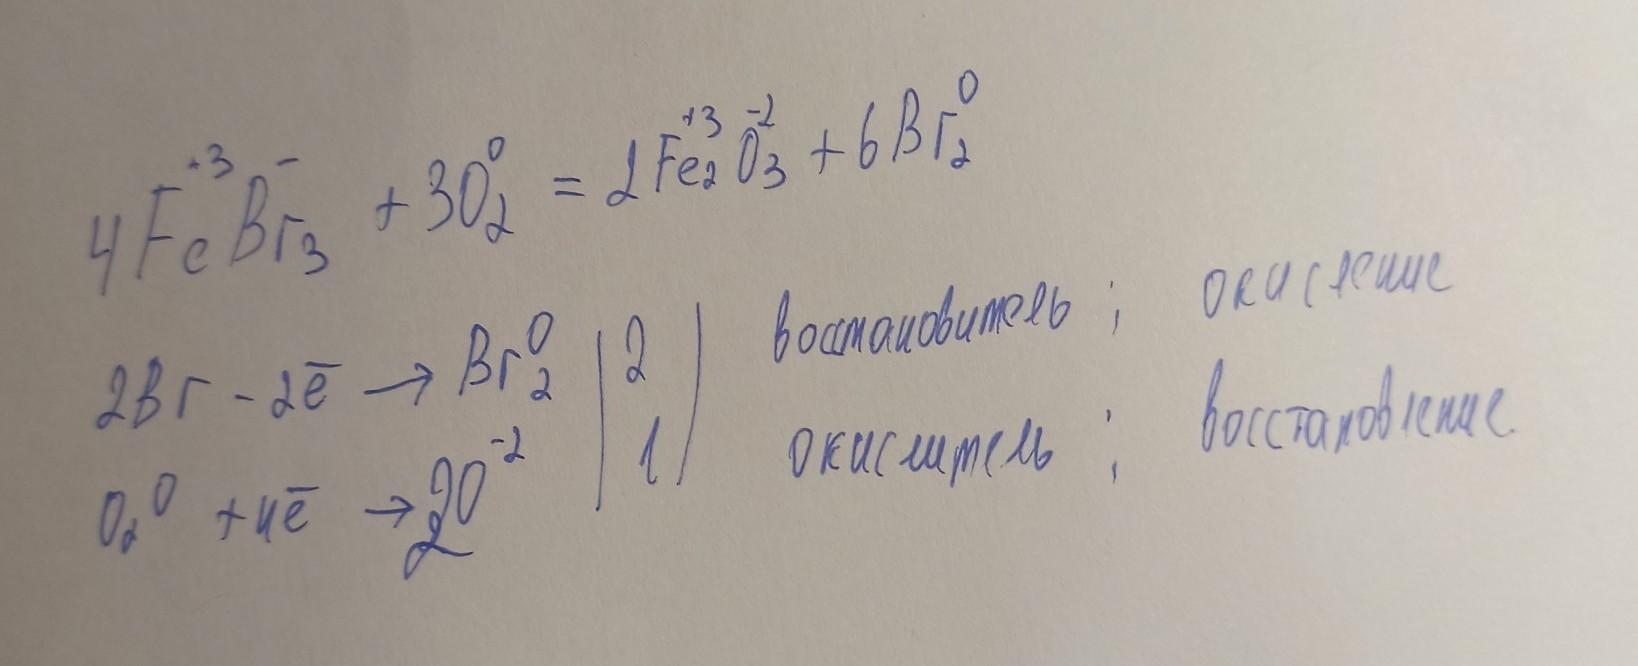 4Fe⁺³Br⁻₃ + 3O⁰₂ = 2Fe⁺³₂O⁻²₃ + 6Br⁰₂
2Br - 2ē → Br⁰₂ | 2 | восстановитель ; окисление
O₂⁰ + 4ē → 2O⁻² | 1 | окислитель ; восстановление